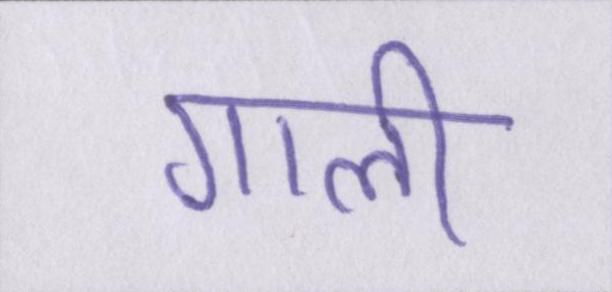 गाली